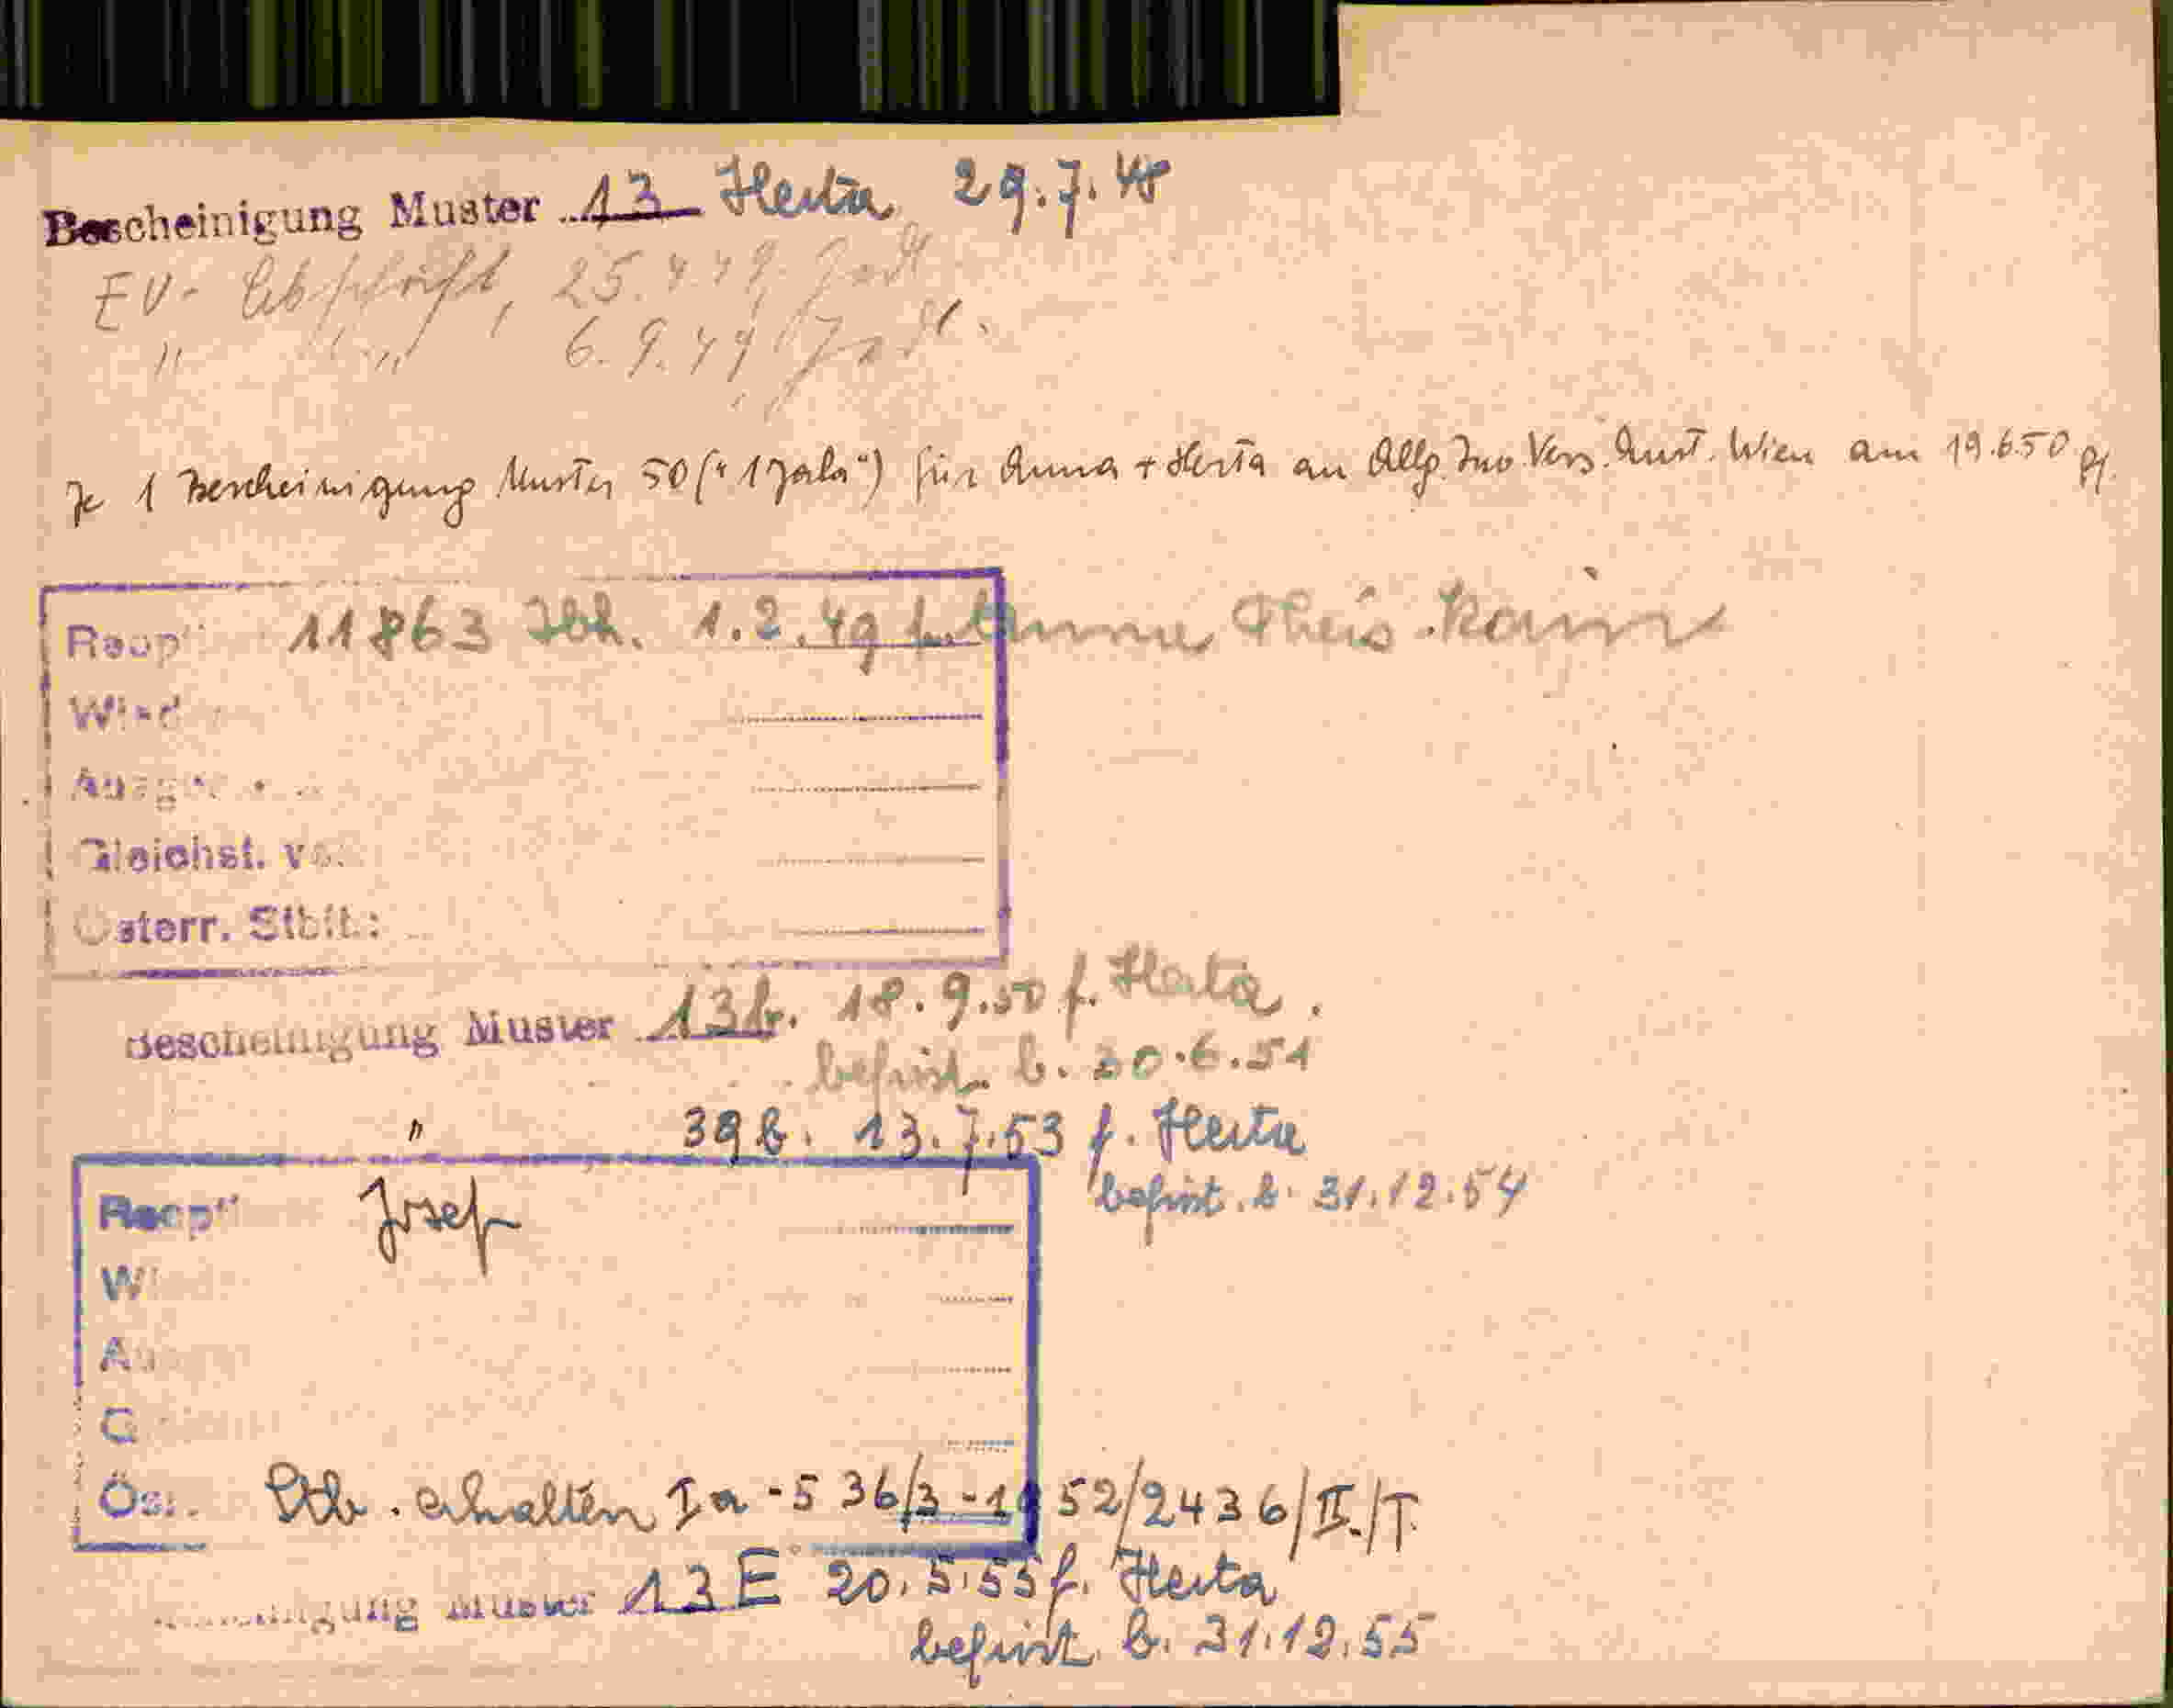 Bescheinigung Muster 13 Herta 29.7.48
EV- Abschrift, 25.4.49
" " 6.9.49
Je 1 Bescheinigung Muster 50 für Anna + Herta an Allg. Inv. Vers. Anst. Wien am 19.6.50
11863 1.2.49 Anna Theis
Gleichst. v
Österr. Stbft.:
Bescheinigung Muster 13b. 18.9.50 f. Herta.
befrist. b. 30.6.51
" 39b. 13.7.53 f. Herta
befrist. b. 31.12.54
Josef
Ös. Stb. erhalten Ia-536/3-1952/2436/II./T.
Muster 13E 20.5.55 f. Herta
befrist. b. 31.12.55